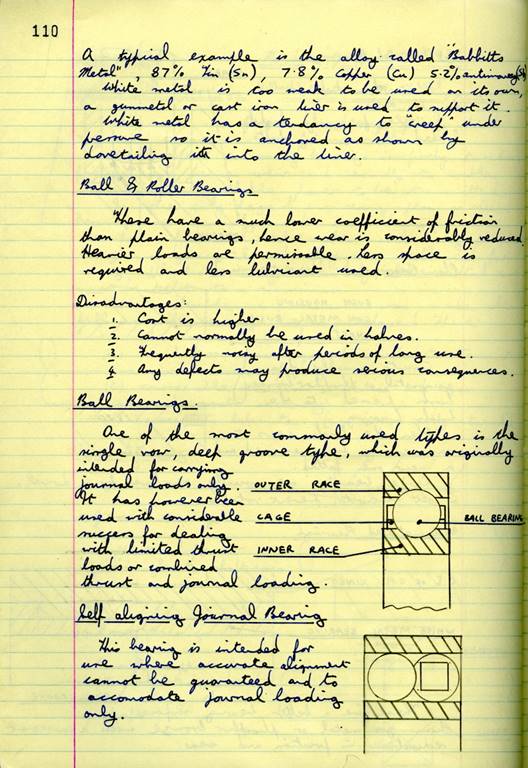 110
A typical example is the alloy called "Babbitts
Metal", 87% Tin (Sn), 7.8% Copper (Cu) 5.2% antimony (Sb)
White metal is too weak to be used on its own,
a gunmetal or cast iron liner is used to support it.
White metal has a tendancy to "creep" under
pressure so it is anchored as shown by
dovetailing it into the liner.
Ball & Roller Bearings
These have a much lower coefficient of friction
than plain bearings, hence wear is considerably reduced.
Heavier loads are permissable. Less space is
required and less lubricant used.
Disadvantages:
1. Cost is higher
2. Cannot normally be used in halves.
3. Frequently noisy after periods of long use.
4. Any defects may produce serious consequences.
Ball Bearings.
One of the most commonly used types is the
single row, deep groove type, which was originally
intended for carrying
journal loads only.
It has however been
used with considerable
success for dealing
with limited thrust
loads or combined
thrust and journal loading.
OUTER RACE
CAGE
BALL BEARING
INNER RACE
Self aligning Journal Bearing
This bearing is intended for
use where accurate alignment
cannot be guaranteed and to
accomodate journal loading
only.